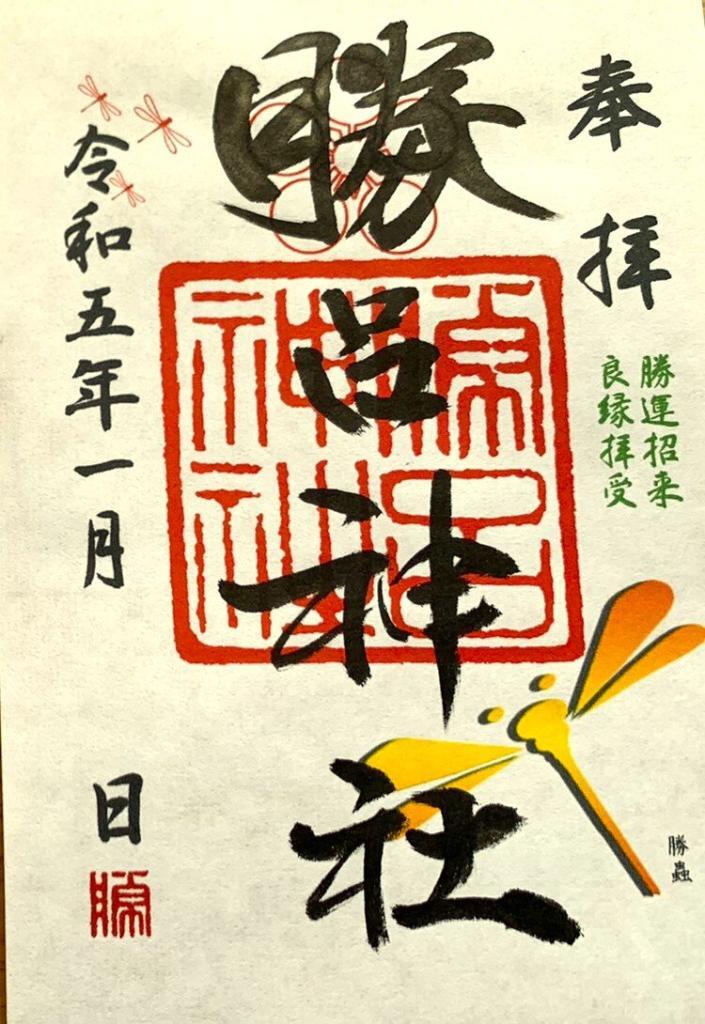 奉拝
勝運招来
良縁拝受
勝呂神社
勝呂神社
令和五年一月 日
勝
勝蟲